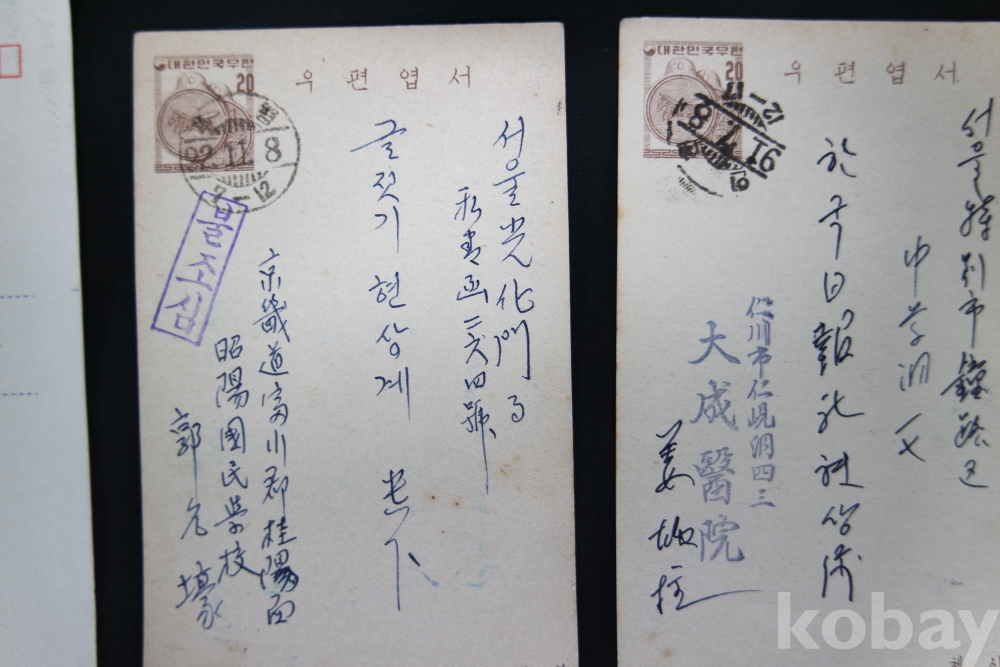 대한민국우편
20
우편엽서
8
7-12
불조심
서울 光化門局
私書函 二六四號
글짓기 현상계
京畿道富川郡桂陽面
昭陽國民學校
郭
대한민국우편
20
우편엽서
서울特別市鐘路區
中學洞
한국日報社
仁川市仁峴洞四三
大成醫院
姜
kobay